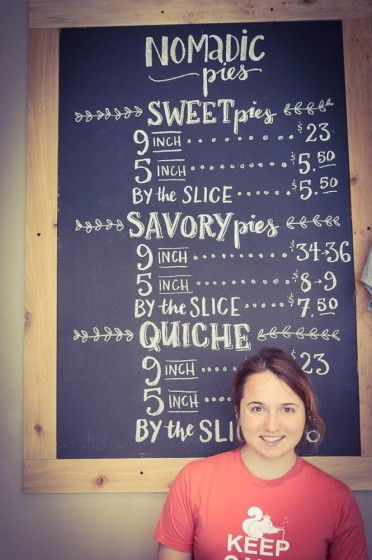 NOMADIC
pies
SWEET pies
9 INCH $23
5 INCH $5.50
BY the SLICE $5.50
SAVORY pies
9 INCH $34-36
5 INCH $8-9
BY the SLICE $7.50
QUICHE
9 INCH $23
5 INCH
BY the
KEEP